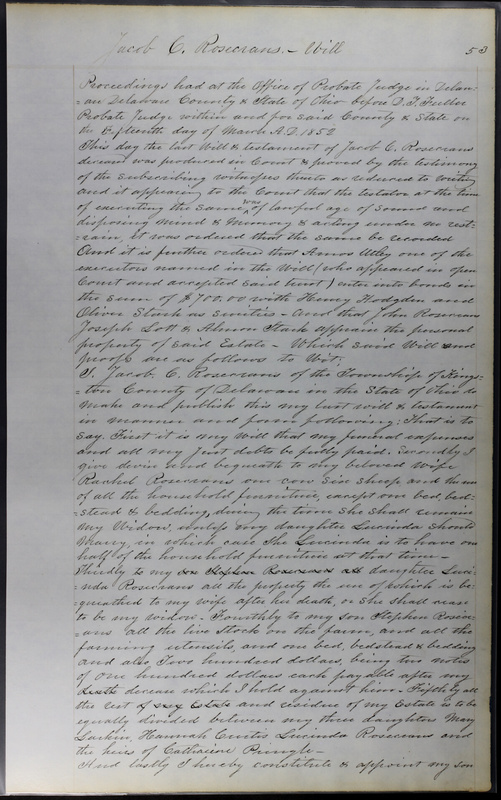 Jacob C. Rosecrans. - Will
53
Proceedings had at the Office of Probate Judge in Delaw-
=are Delaware County & State of Ohio before D. T. Fuller
Probate Judge within and for said County & State on
the Fifteenth day of March A.D. 1852
This day the last Will & testament of Jacob C. Rosecrans
deceased was produced in Court & proved by the testimony
of the subscribing witnesses thereto as reduced to writing
and it appearing to the Court that the testator at the time
of executing the same was of lawful age of sound and
disposing mind & memory & acting under no rest-
=raint, it was ordered that the same be recorded
And it is further ordered that Amos Utley one of the
executors named in the Will (who appeared in open
Court and accepted said trust) enter into bonds in
the sum of $700.00 with Henry Hodgden and
Oliver Stark as sureties - And that John Rosecrans
Joseph Lott & Almon Stark appraise the personal
property of said Estate - Which said Will and
proofs are as follows to Wit:
I, Jacob. C. Rosecrans of the Township of Kings-
=ton County of Delaware in the State of Ohio do
make and publish this my last will & testament
in manner and form following: That is to
say. First it is my will that my funeral expenses
and all my just debts be fully paid. Secondly I
give devise and bequeath to my beloved wife
Rachel Rosecrans one cow six sheep and the use
of all the household furniture, except one bed, bed-
=stead & bedding, during the time she shall remain
my Widow, unless my daughter Lucinda should
Marry, in which case she Lucinda is to have one
half of the household furniture at that time -
Thirdly to my daughter Luci-
nda Rosecrans all the property the use of which is be-
=queathed to my wife after his death, or she shall cease
to be my widow. - Fourthly to my son Stephen Rosecr-
=ans all the live stock on the farm, and all the
farming utensils, and one bed, bedstead & bedding
and also Two hundred dollars, being two notes
of one hundred dollars each payable after my
decease which I hold against him. - Fifthly all
the rest of Estate and residue of my Estate is to be
equally divided between my three daughters Mary
Larkin, Hannah Curtis Lucinda Rosecrans and
the heirs of Catharine Pringle -
And lastly I hereby constitute & appoint my son